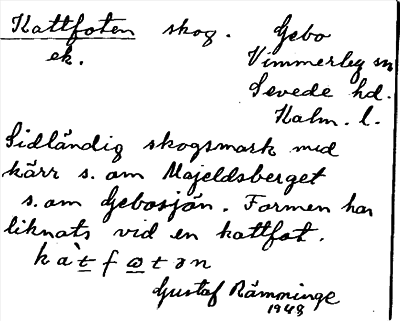 Kattfoten skog. Gebo
ek. Vimmerby sn
Sevede hd.
Kalm. l.
Sidländig skogsmark med
kärr s. om Majeldsberget
s. om Gebosjön. Formen har
liknats vid en kattfot.
kàt fωtən
Gustaf Rämminge
1948